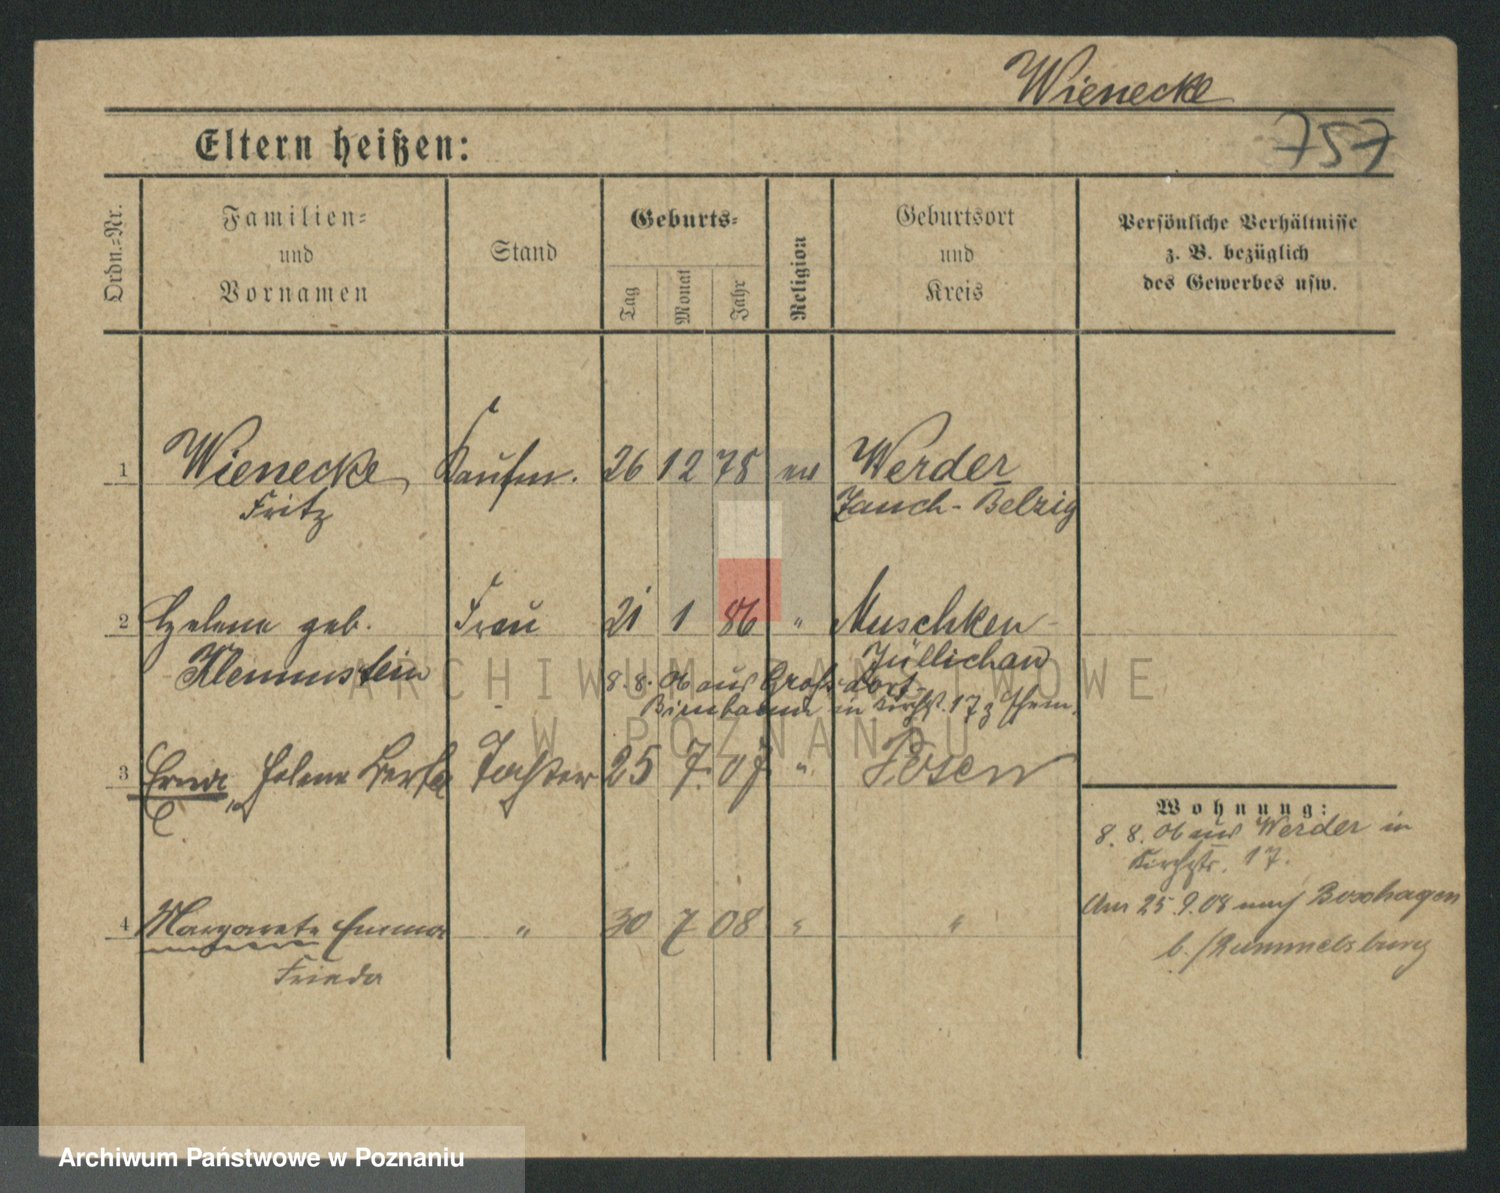 Wienecke
Eltern heißen:
757
Ordn.-Nr.
Familien-
und
Vornamen
Stand
Geburts-
Tag
Monat
Jahr
Religion
Geburtsort
und
Kreis
Persönliche Verhältnisse
z. B. bezüglich
des Gewerbes usw.
1 Wienecke, Kaufm. 26 12 78 ev Werder
Fritz Zauch-Belzig
2 Helene geb. Frau 21 1 86 " Muschken
Klemmstein Züllichau
8.8.06 aus Großdorf-
Birnbaum in Kirchst. 17 z
3 Erna, Helene Berta Tochter 25 7. 07 " Posen
Wohnung:
8. 8. 06 aus Werder in
Kirchstr. 17.
4 Margarete Emma " 30 7 08 " "
Frieda
Am 25.9.08 nach Boxhagen
b./Rummelsburg
ARCHIWUM PAŃSTWOWE
W POZNANIU
Archiwum Państwowe w Poznaniu